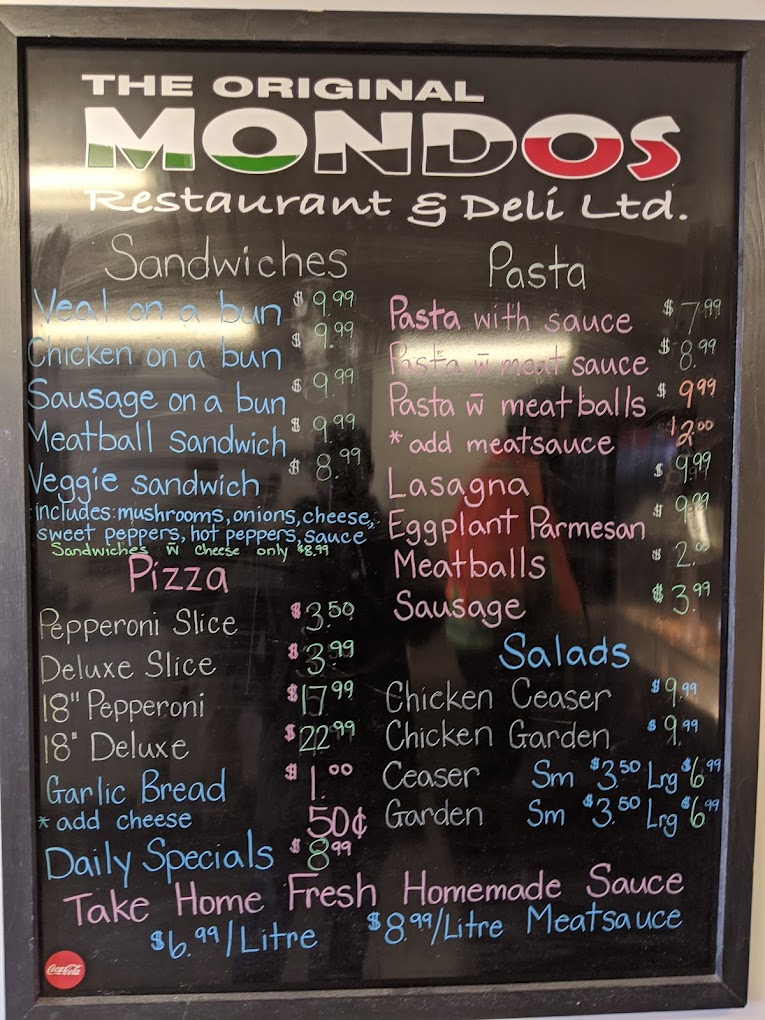 THE ORIGINAL
MONDOS
Restaurant & Deli Ltd.
Sandwiches
Veal on a bun $9.99
Chicken on a bun $9.99
Sausage on a bun $9.99
Meatball sandwich $9.99
Veggie sandwich $8.99
includes: mushrooms, onions, cheese,
sweet peppers, hot peppers, sauce
Sandwiches w̄ cheese only $8.99
Pizza
Pepperoni Slice $3.50
Deluxe Slice $3.99
18" Pepperoni $17.99
18" Deluxe $22.99
Garlic Bread $1.00
* add cheese 50¢
Daily Specials $8.99
Pasta
Pasta with sauce $7.99
Pasta w̄ meat sauce $8.99
Pasta w̄ meatballs $9.99
* add meatsauce $2.00
Lasagna $9.99
Eggplant Parmesan $9.99
Meatballs $2.00
Sausage $3.99
Salads
Chicken Ceaser $9.99
Chicken Garden $9.99
Ceaser Sm $3.50 Lrg $6.99
Garden Sm $3.50 Lrg $6.99
Take Home Fresh Homemade Sauce
$6.99/Litre $8.99/Litre Meatsauce
Coca-Cola